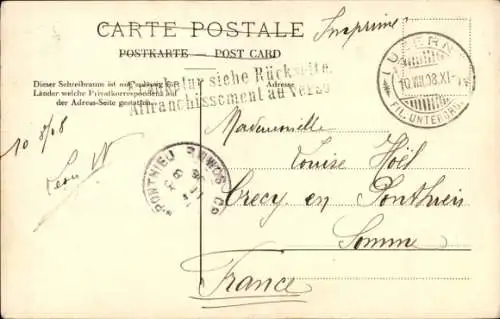 CARTE POSTALE
Imprimé
POSTKARTE — POST CARD
Dieser Schreibraum ist nur gültig für
Länder welche Privatkorrespondenz auf
der Adress-Seite gestatten.
Frankatur siehe Rückseite.
Affranchissement au verso
Adresse
LUZERN
10.VIII.08.XI-
FIL. UNTERGRD.
10 8/08
Mademoiselle
Louise Hoël
Crecy en Ponthieu
Somme
France